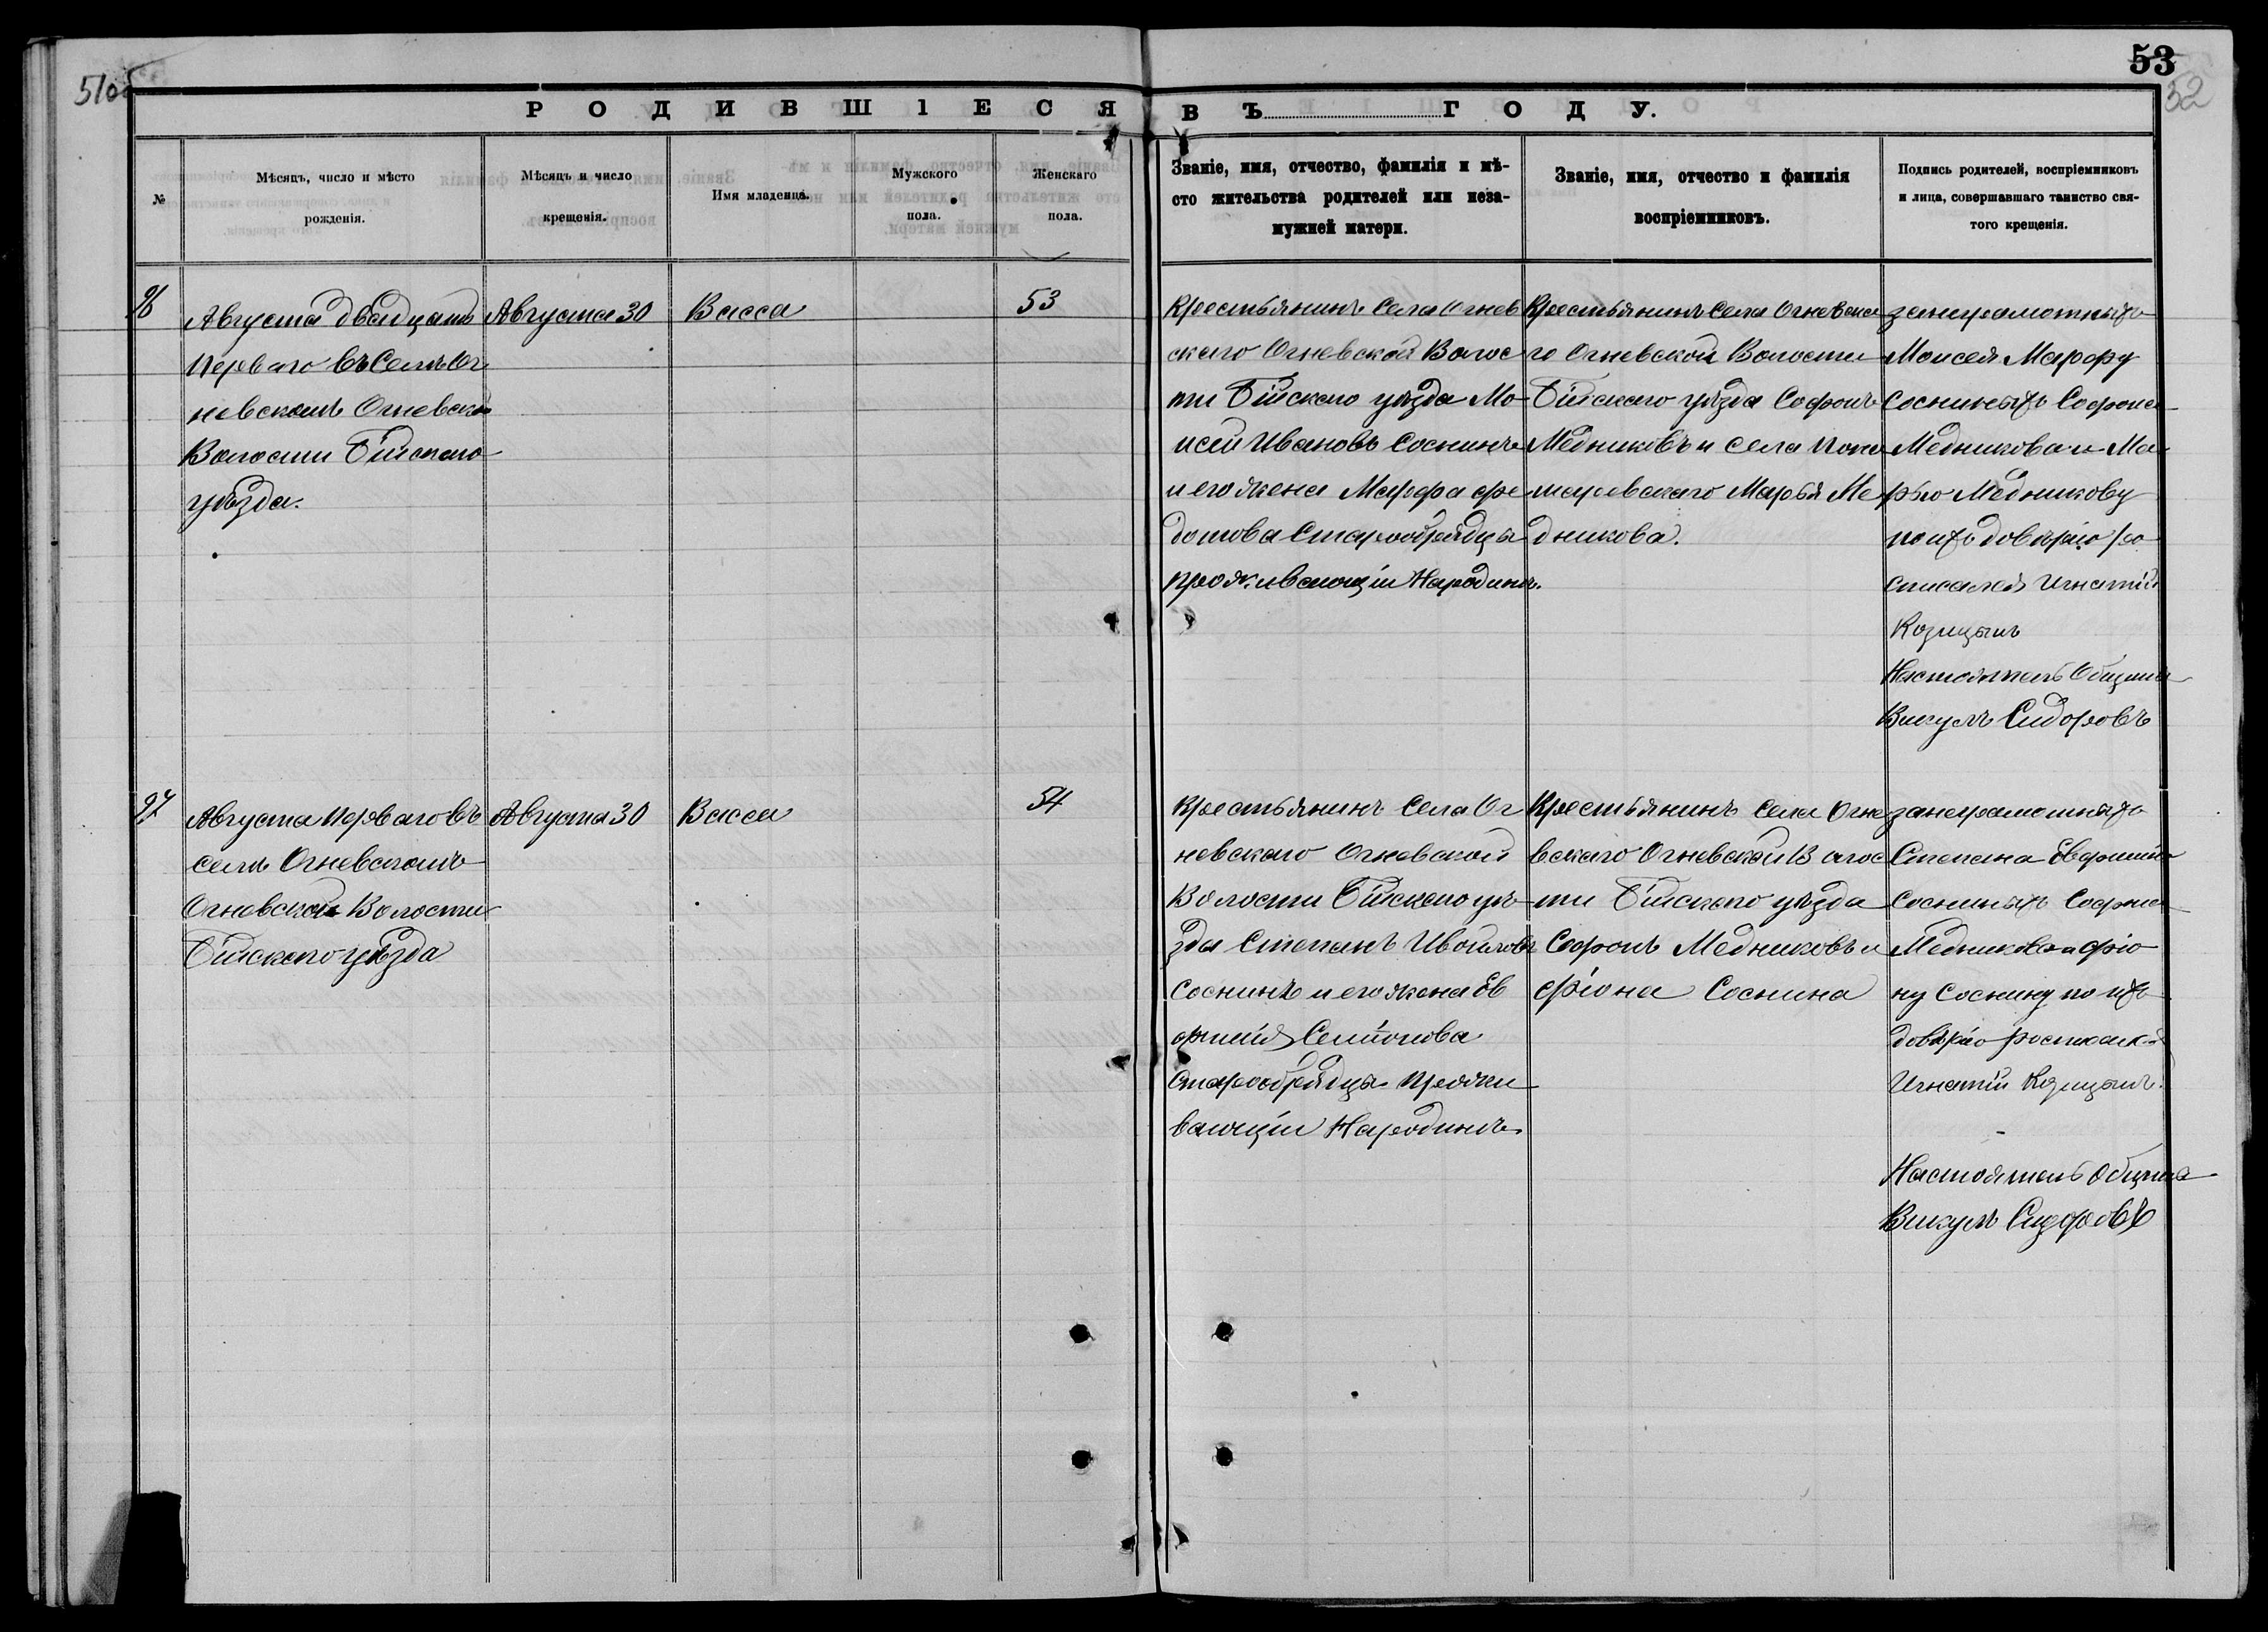 53
52
51об
РОДИВШІЕСЯ ВЪ ГОДУ.
№
Мѣсяцъ, число и мѣсто
рожденія.
Мѣсяцъ и число
крещенія.
Имя младенца.
Мужского
пола.
Женскаго
пола.
Званіе, имя, отчество, фамилія и мѣ-
сто жительства родителей или неза-
мужней матери.
Званіе, имя, отчество и фамилія
воспріемниковъ.
Подпись родителей, воспріемниковъ
и лица, совершавшаго таинство свя-
того крещенія.
96
Августа двадцать
Перваго въ Селѣ Ог
невскомъ Огневской
Волости Бійскаго
уѣзда.
Августа 30
Васса
53
Крестьянинъ Села Огнев
скаго Огневской Волос
ти Бійскаго уѣзда Мо
исей Ивановъ Соснинъ
и его жена Марфа Фе
дотова Старообрядцы
проживающіи Народинѣ.
Крестьянинъ Села Огневска
го Огневской Волости
Бійскаго уѣзда Софронъ
Медниковъ и села
Марья Ме
дникова.
занеграмотныхъ
Моисея Марфу
Сосниныхъ Софрона
Медникова и Ма
рью Медникову
по ихъ довѣрію ро
списался Игнатій
Козицынъ
Настоятель Общины
Викулъ Сидоровъ
97
Августа Перваго въ
селѣ Огневскомъ
Огневской Волости
Бійскаго уѣзда
Августа 30
Васса
54
Крестьянинъ Села Ог
невскаго Огневской
Волости Бійскаго уѣ
зда Степанъ Ивойловъ
Соснинъ и его жена Ев
фимія Семіонова
Старообрядцы прожи
вающіи Народинѣ
Крестьянинъ Села Огне
вскаго Огневской Волос
ти Бійскаго уѣзда
Софронъ Медниковъ и
Фіона Соснина
занеграмотныхъ
Степана Евфимію
Сосниныхъ Софрона
Медникова Фіо
ну Соснину по ихъ
довѣрію
Игнатій Козицынъ.
Настоятель Общины
Викулъ Сидоровъ